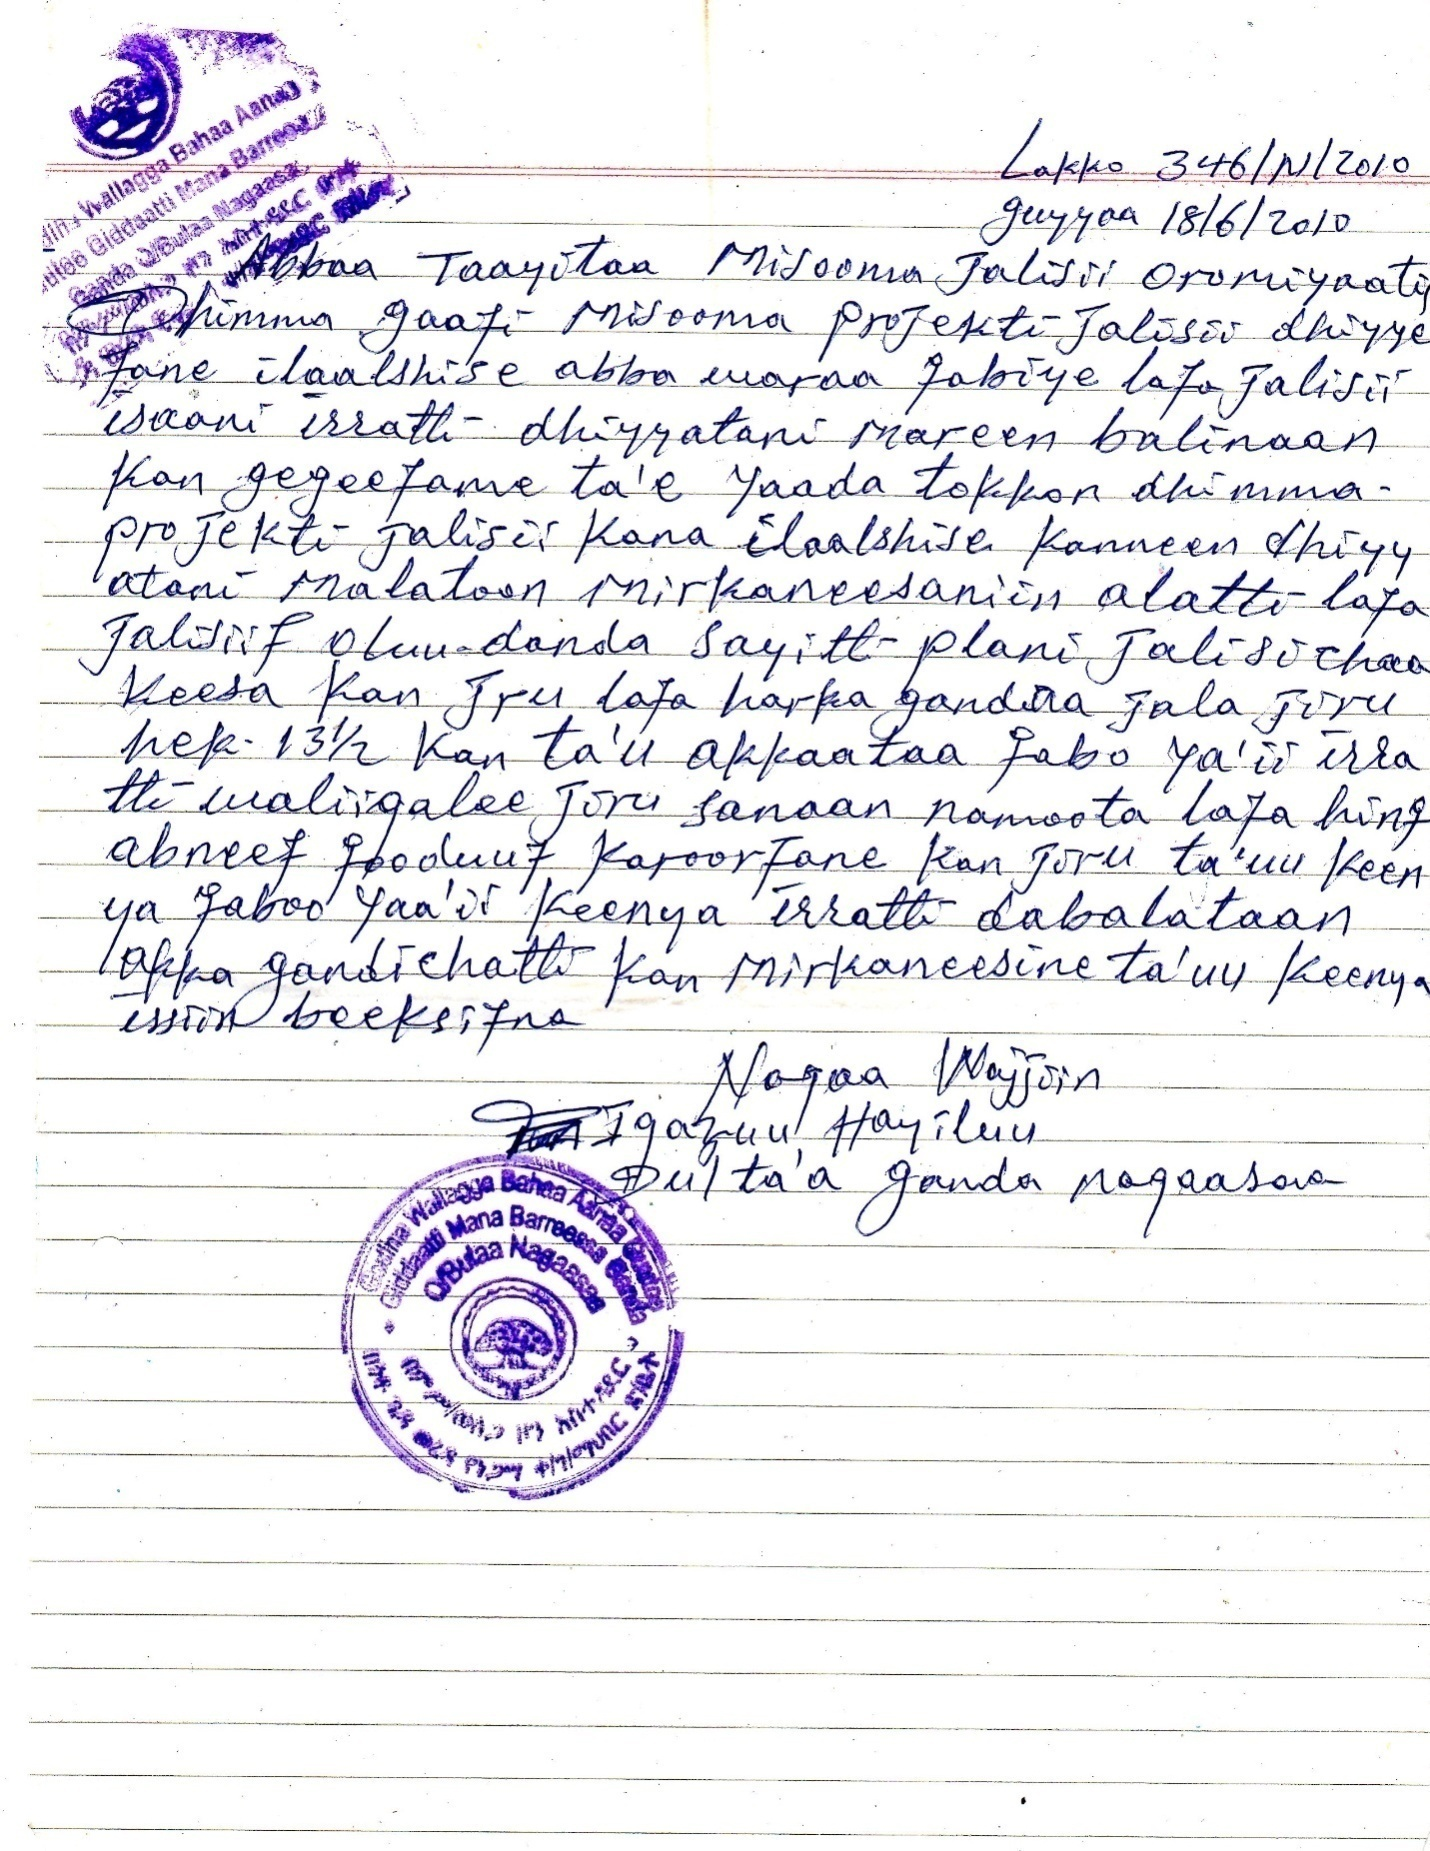 Wallagga Bahaa Aanaa
Giddaatti Mana Barreessa
Ganda Q/Bulaa Nagaasaa
Lakko 346/N/2010
guyyaa 18/6/2010
Abbaa Taayitaa Misooma Jalisii Oromiyaatif
Dhimma gaafi Misooma projekti Jalisii dhiyye
fane ilaalshise abba waraa Qabiye lafa Jalisii
isaani irratti dhiyyatani Mareen balinaan
Kan gegeefame ta'e yaada tokkon dhimma-
projekti jalisii Kana ilaalshise Kanneen dhiyy
atani Malatoon Mirkaneesaniin alatti lafa
Jalisiif Oluu-danda sayitti plani Jalisichaa
Keesa Kan Jru lafa harka gandaa jala jiru
hek- 13½ Kan ta'u akkaataa Qabo ya'ii irra
tti waliigalee Jiru sanaan namoota lafa hinq
abneef Qooduuf Karoorfane Kan Jiru ta'uu Keen
ya Qaboo Yaa'ii Keenya irratti dabalataan
akka gandichatti Kan Mirkaneesine ta'uu Keenya
issiin beeksifna
Nagaa Wajjiin
Igazuu Hayiluu
Dulta'a ganda nagaasaa
Godina Wallagga Bahaa Aanaa
Giddaatti Mana Barreessa Ganda
Q/Bulaa Nagaasaa